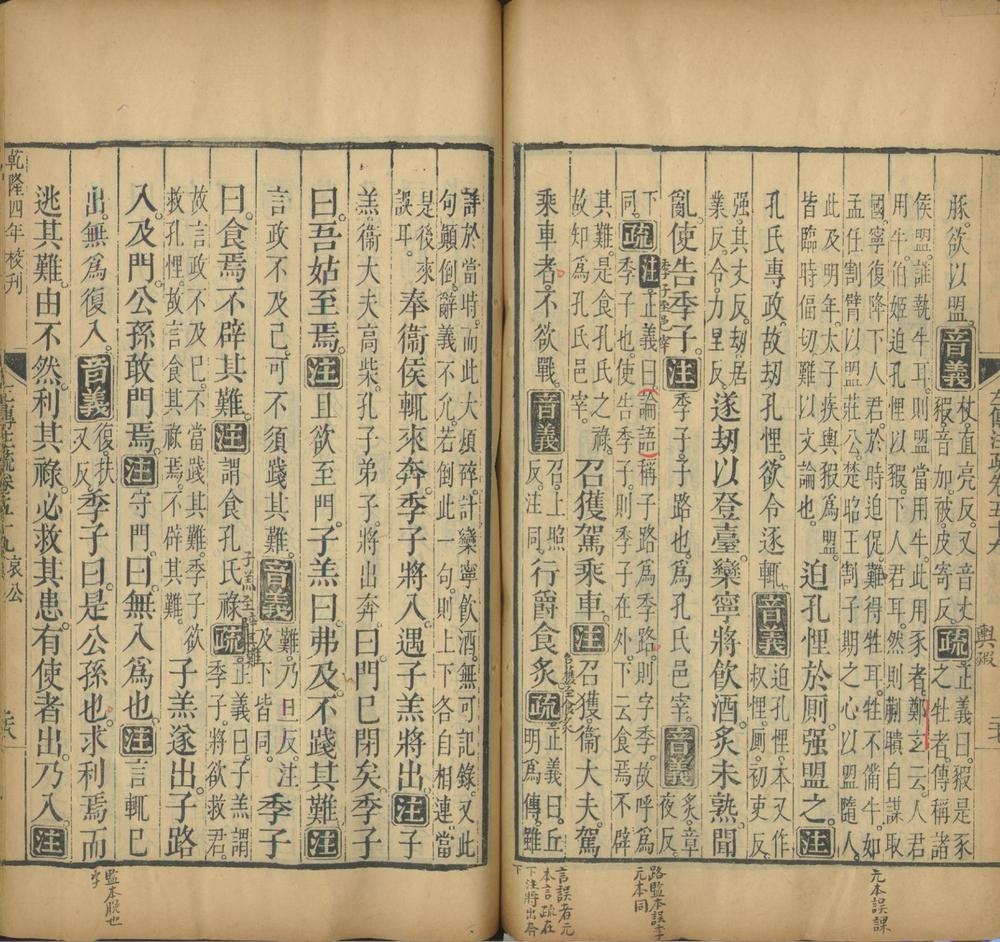 豚。欲以盟。音義杖。直亮反。又音丈。
豭。音加。被。皮寄反。疏正義曰。豭是豕
之牡者。傳稱諸
侯盟。誰執牛耳。則盟當用牛。此用豕者。鄭玄云。人君
用牛。伯姬迫孔悝以豭。下人君耳。然則蒯聵自謀取
國。寧復降下人君。於時迫促。難得牲耳。牲不備牛。如
孟任割臂以盟莊公。楚昭王割子期之心以盟隨人。
此及明年。太子疾輿豭爲盟。
皆臨時偪切。難以文論也。
迫孔悝於厠。强盟之。注
孔氏專政。故劫孔悝。欲令逐輒。音義迫孔悝。本又作
叔悝。厠。初吏反。
强。其丈反。劫。居
業反。令。力呈反。
遂劫以登臺。欒寧將飲酒。炙未熟。聞
亂。使告季子。注季子。子路也。爲孔氏邑宰。音義炙。章
夜反。
下
同。疏注正義曰。論語稱子路爲季路。則字季。故呼爲
季子也。使告季子。則季子在外。下云食焉不辟
其難。是食孔氏之祿。
故知爲孔氏邑宰。
召獲駕乘車。注召獲。衞大夫。駕
乘車者。不欲戰。音義召。上照
反。注同。
行爵食炙。疏正義曰。丘
明爲傳。雖
季子至邑宰
召獲至食炙
輿豭
元本誤課
路監本誤季
元本同
言誤者元
本言疏在
下注將出奔
下
詳於當時。而此大煩碎。計欒寧飲酒。無可記錄。又此
句顚倒。辭義不允。若倒此一句。則上下各自相連。當
是後來
誤耳。
奉衞侯輒來奔。季子將入。遇子羔將出。注子
羔。衞大夫高柴。孔子弟子。將出奔。曰。門已閉矣。季子
曰。吾姑至焉。注且欲至門。子羔曰。弗及。不踐其難。注
言政不及己。可不須踐其難。音義難。乃旦反。注
及下皆同。
季子
曰。食焉不辟其難。注謂食孔氏祿。疏正義曰。子羔謂
季子。將欲救君。
故言政不及己。不當踐其難。季子欲
救孔悝。故言食其祿焉。不辟其難。
子羔遂出。子路
入。及門。公孫敢門焉。注守門。曰。無入爲也。注言輒已
出。無爲復入。音義復。扶
又反。
季子曰。是公孫也。求利焉。而
逃其難。由不然。利其祿。必救其患。有使者出。乃入。注
監本脫也
字
乾隆四年校刊
哀公